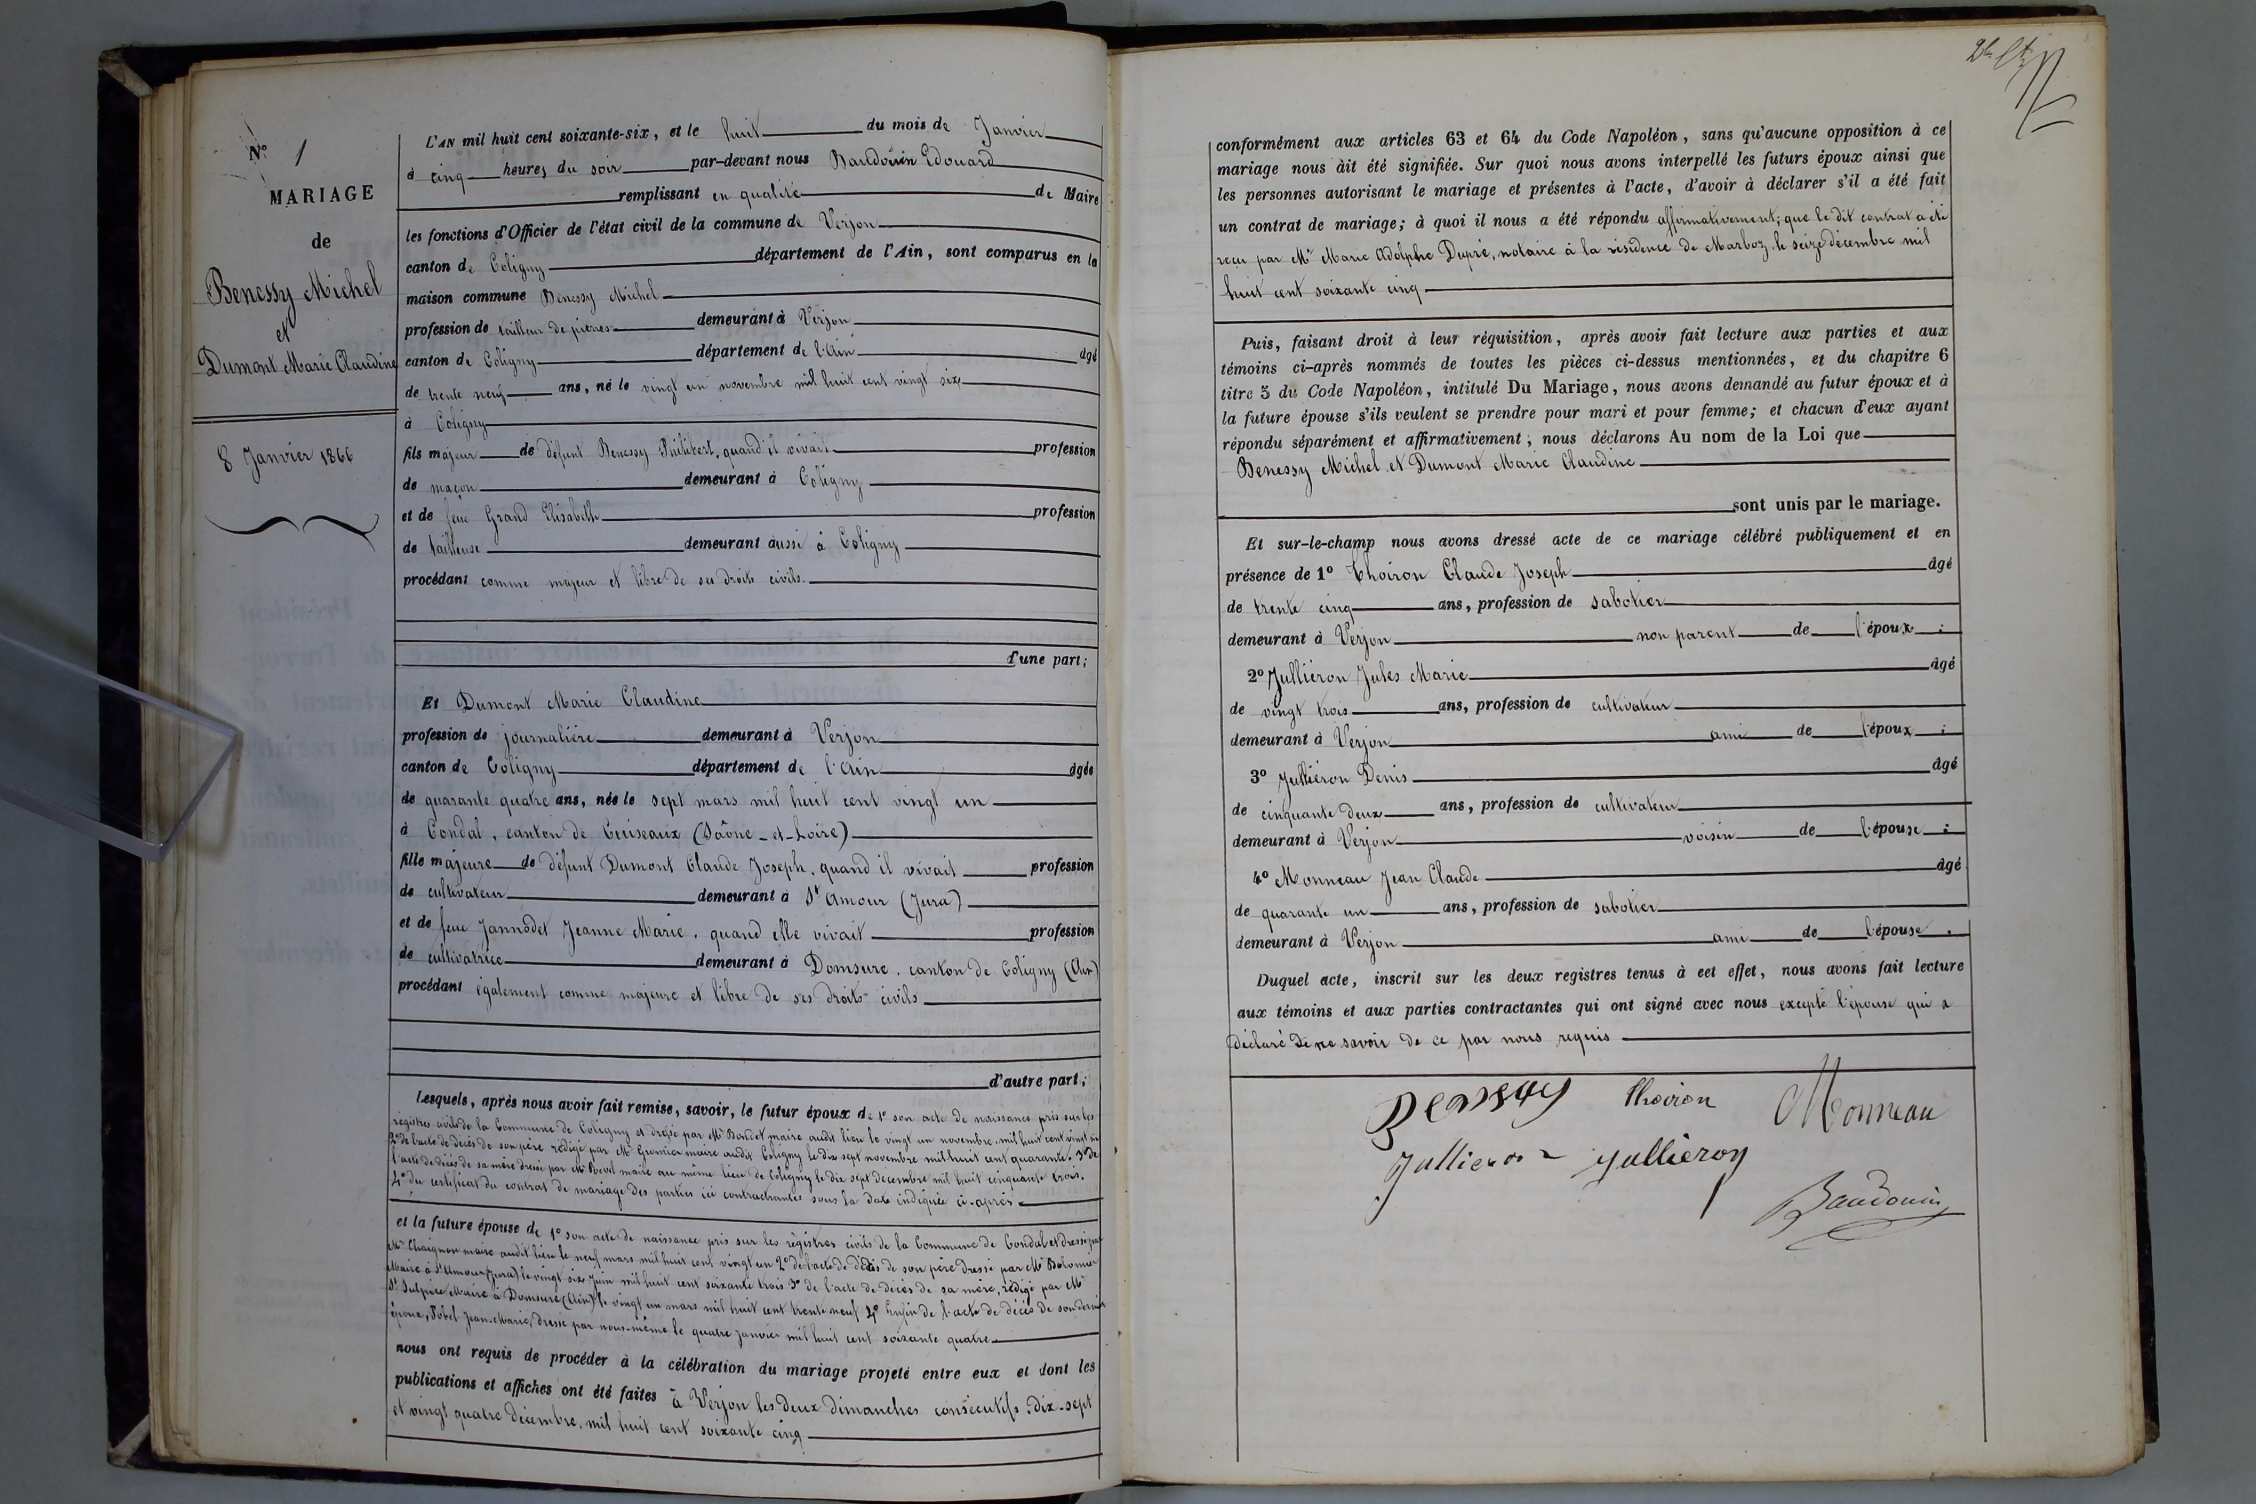 N° 1
MARIAGE
de
Benessy Michel
et
Dumont Marie Claudine
8 Janvier 1866
L'AN mil huit cent soixante-six, et le huit du mois de Janvier
à cinq heures du soir par-devant nous Baudouin Edouard
remplissant en qualité de Maire
les fonctions d'Officier de l'état civil de la commune de Verjon
canton de Coligny département de l'Ain, sont comparus en la
maison commune Benessy Michel
profession de tailleur de pierres demeurant à Verjon
canton de Coligny département de l'Ain âgé
de trente neuf ans, né le vingt un novembre mil huit cent vingt six
à Coligny
fils majeur de défunt Benessy Philibert, quand il vivait profession
de maçon demeurant à Coligny
et de feue Grand Elisabeth profession
de tailleuse demeurant aussi à Coligny
procédant comme majeur et libre de ses droits civils.
d'une part;
Et Dumont Marie Claudine
profession de journalière demeurant à Verjon
canton de Coligny département de l'Ain âgée
de quarante quatre ans, née le sept mars mil huit cent vingt un
à Condal, canton de Cuiseaux (Saône-et-Loire)
fille majeure de défunt Dumont Claude Joseph, quand il vivait profession
de cultivateur demeurant à St Amour (Jura)
et de feue Jannodet Jeanne Marie, quand elle vivait profession
de cultivatrice demeurant à Domsure, canton de Coligny (Ain)
procédant également comme majeure et libre de ses droits civils
d'autre part;
Lesquels, après nous avoir fait remise, savoir, le futur époux de 1° son acte de naissance pris sur les
registres civils de la Commune de Coligny et dressé par Mr Boudet maire audit lieu le vingt un novembre mil huit cent vingt six
2° de l'acte de décès de son père rédigé par Mr maire audit Coligny le dix sept novembre mil huit cent quarante. 3° de
l'acte de décès de sa mère dressé par Mr maire au même lieu de Coligny le dix sept décembre mil huit cinquante trois.
4° du certificat du contrat de mariage des parties ici contractantes sous la date indiquée ci-après
et la future épouse de 1° son acte de naissance pris sur les régistres civils de la Commune de Condal et dressé par
Mr Chaignon maire audit lieu le neuf mars mil huit cent vingt un 2° de l'acte de décès de son père dressé par Mr Bolomier
Maire à St Amour (Jura) le vingt six Juin mil huit cent soixante trois 3° de l'acte de décès de sa mère, rédigé par Mr
St Sulpice Maire à Domsure (Ain) le vingt un mars mil huit cent trente neuf 4° Enfin de l'acte de décès de son dernier
époux, Jean-Marie, dressé par nous-même le quatre janvier mil huit cent soixante quatre
nous ont requis de procéder à la célébration du mariage projeté entre eux et dont les
publications et affiches ont été faites à Verjon les deux dimanches consécutifs, dix-sept
et vingt quatre décembre, mil huit cent soixante cinq
conformément aux articles 63 et 64 du Code Napoléon, sans qu'aucune opposition à ce
mariage nous ait été signifiée. Sur quoi nous avons interpellé les futurs époux ainsi que
les personnes autorisant le mariage et présentes à l'acte, d'avoir à déclarer s'il a été fait
un contrat de mariage; à quoi il nous a été répondu affirmativement; que le dit contrat a été
reçu par Me Marie Adolphe Dupré, notaire à la résidence de Marboz, le seize décembre mil
huit cent soixante cinq
Puis, faisant droit à leur réquisition, après avoir fait lecture aux parties et aux
témoins ci-après nommés de toutes les pièces ci-dessus mentionnées, et du chapitre 6
titre 5 du Code Napoléon, intitulé Du Mariage, nous avons demandé au futur époux et à
la future épouse s'ils veulent se prendre pour mari et pour femme; et chacun d'eux ayant
répondu séparément et affirmativement, nous déclarons Au nom de la Loi que
Benessy Michel et Dumont Marie Claudine
sont unis par le mariage.
Et sur-le-champ nous avons dressé acte de ce mariage célébré publiquement et en
présence de 1° Thoiron Claude Joseph âgé
de trente cinq ans, profession de sabotier
demeurant à Verjon non parent de l'époux ;
2° Jullieron Jules Marie âgé
de vingt trois ans, profession de cultivateur
demeurant à Verjon ami de l'époux ;
3° Jullieron Denis âgé
de cinquante deux ans, profession de cultivateur
demeurant à Verjon voisin de l'épouse ;
4° Monneau Jean Claude âgé
de quarante un ans, profession de sabotier
demeurant à Verjon ami de l'épouse .
Duquel acte, inscrit sur les deux registres tenus à cet effet, nous avons fait lecture
aux témoins et aux parties contractantes qui ont signé avec nous excepté l'épouse qui a
déclaré de ne savoir de ce par nous requis
Benessy Thoiron Monneau
Jullieron Jullieron
Baudouin